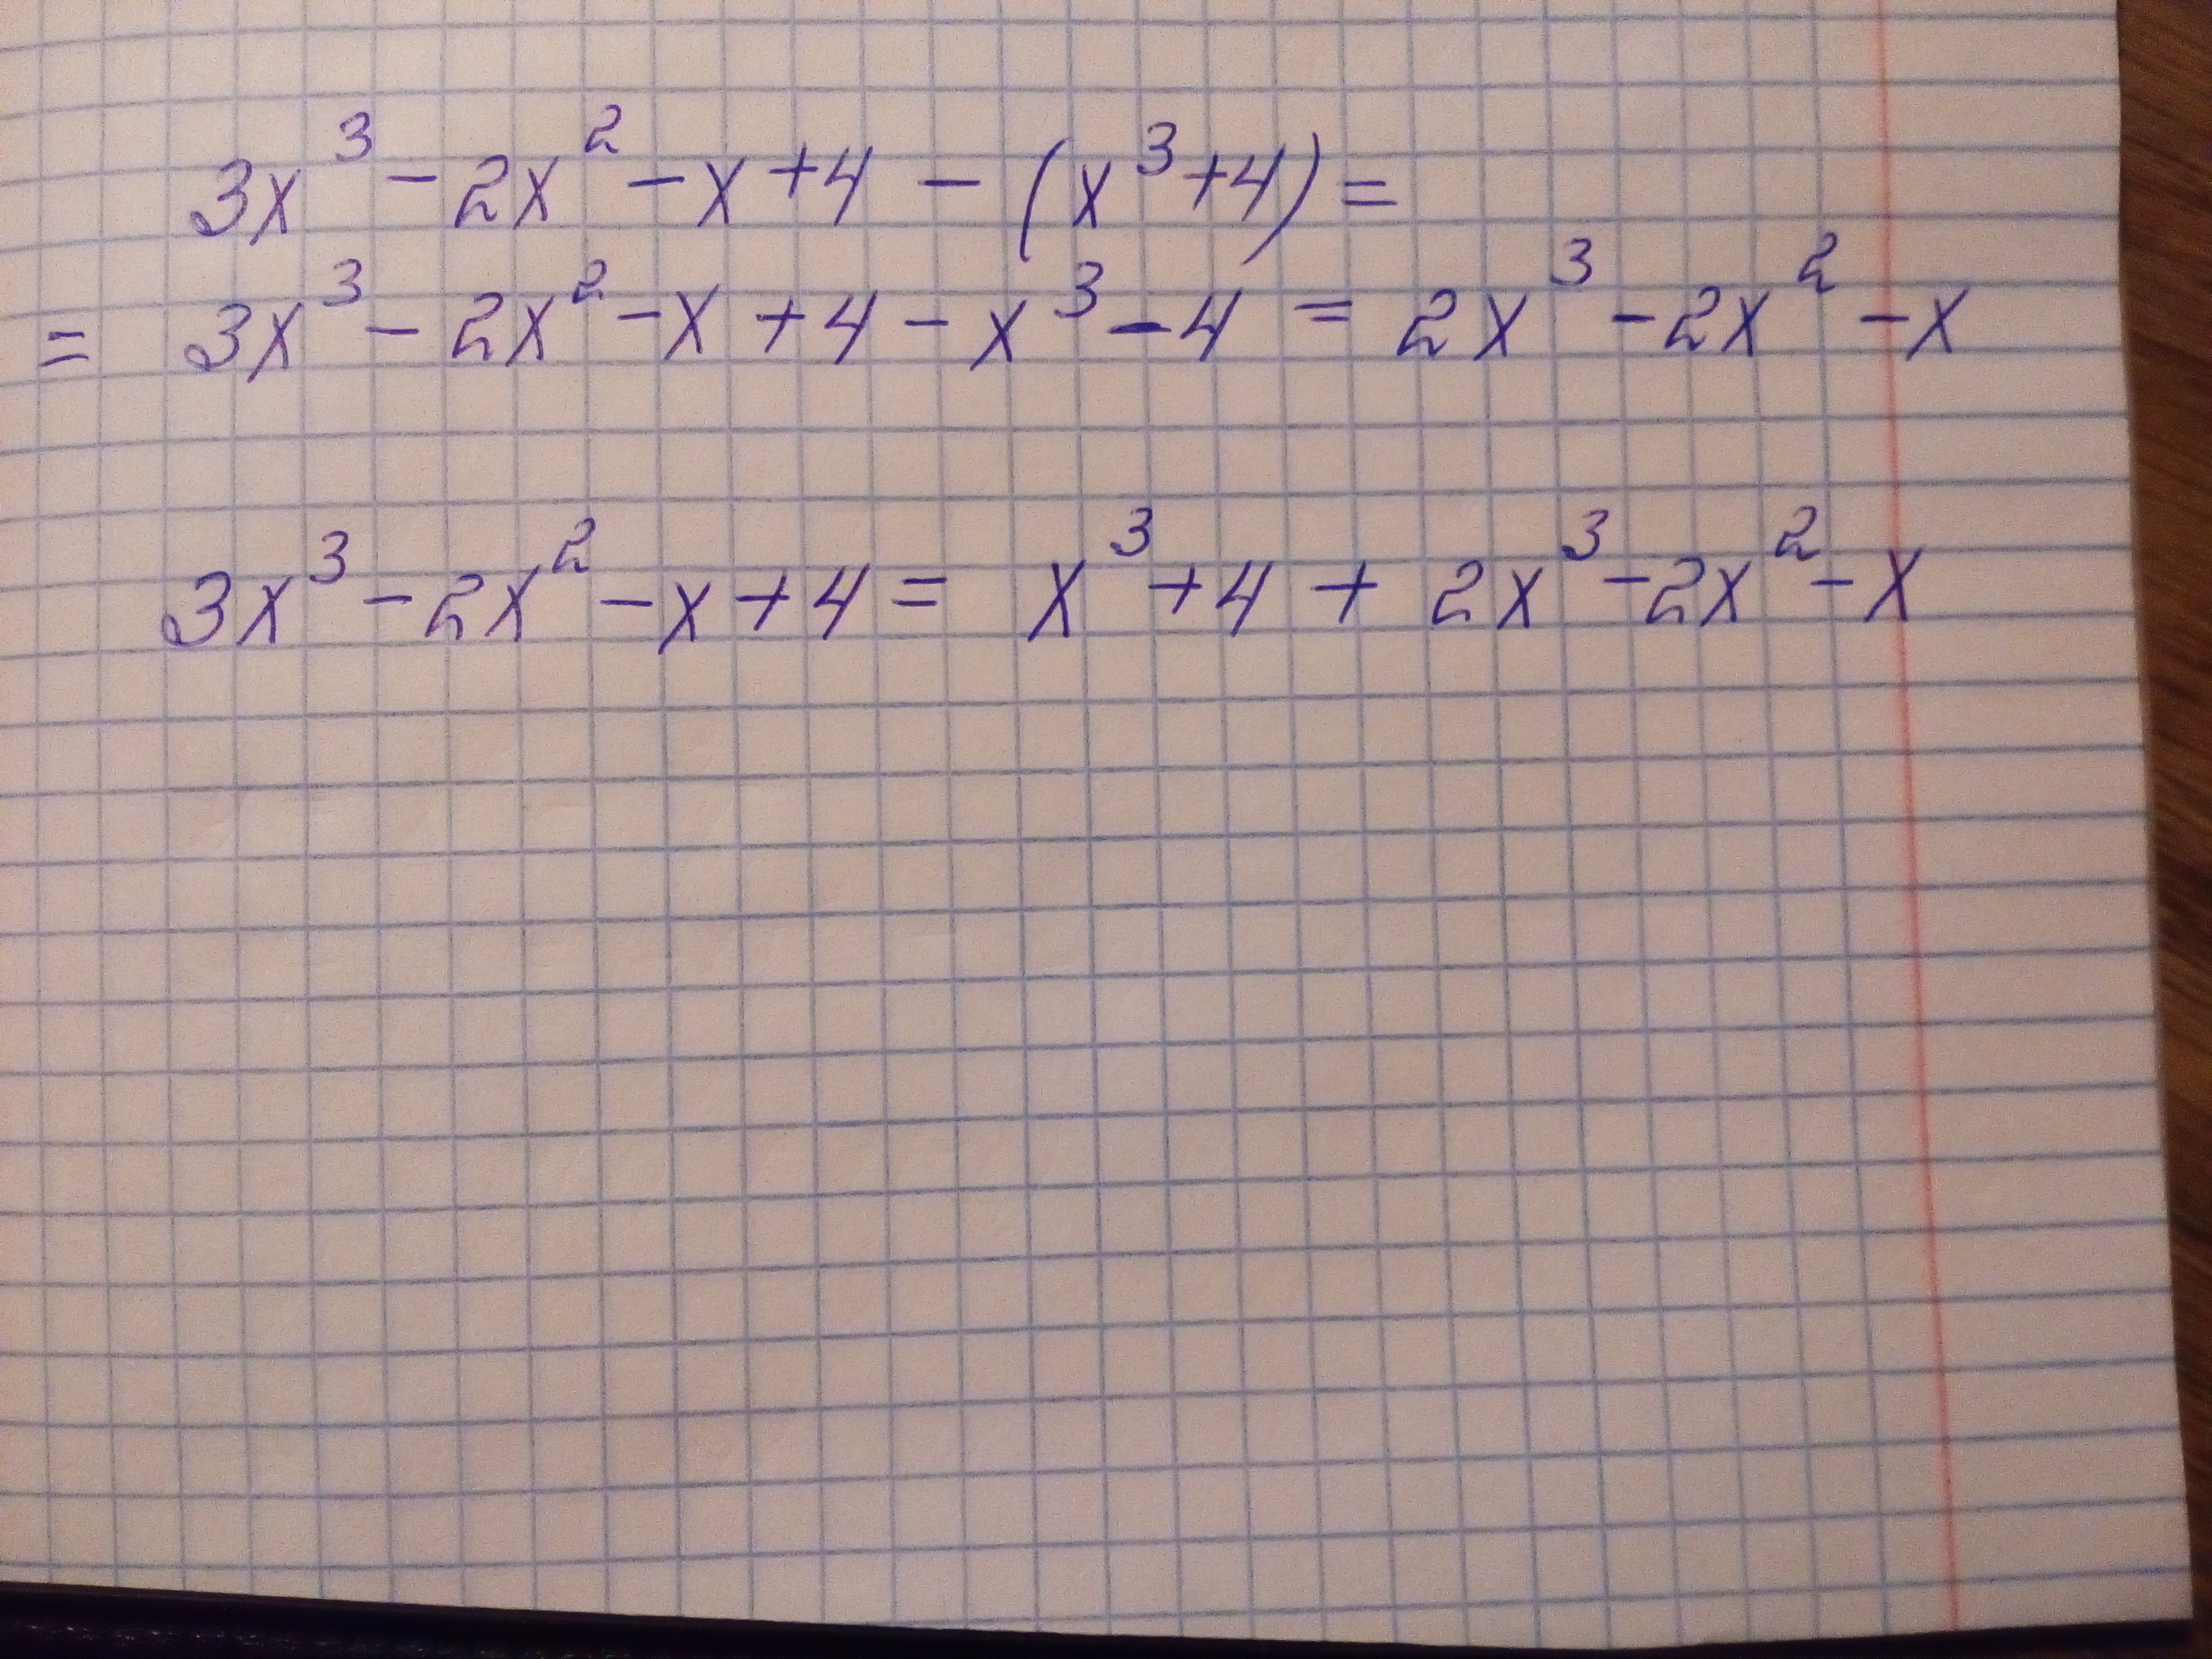 3x³ - 2x² - x + 4 - (x³ + 4) =
= 3x³ - 2x² - x + 4 - x³ - 4 = 2x³ - 2x² - x
3x³ - 2x² - x + 4 = x³ + 4 + 2x³ - 2x² - x